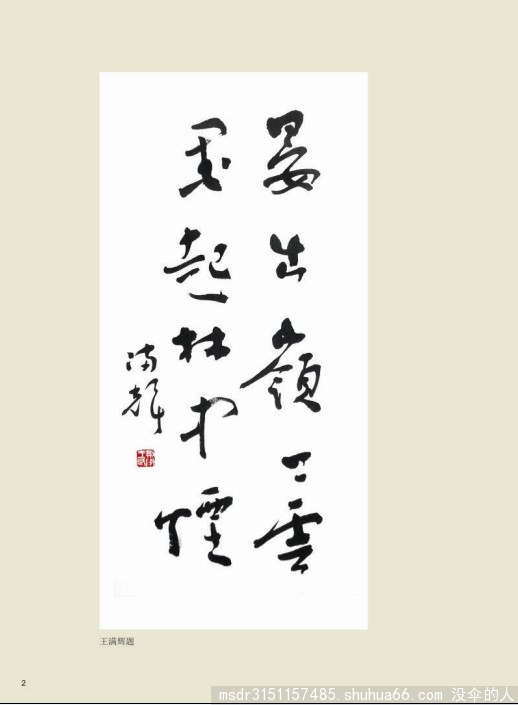 晏出嶺雲
起林中煙
滿輝
王满辉题
2
msdr3151157485.shuhua66.com 没伞的人